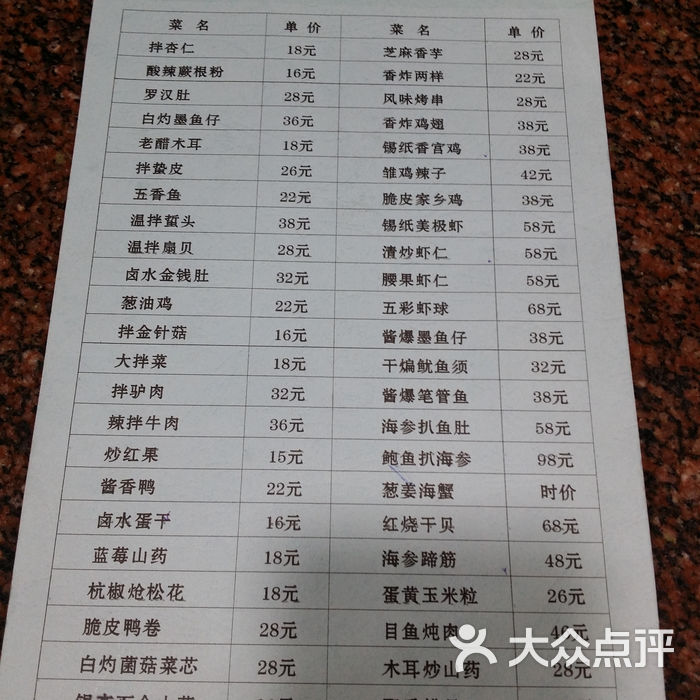 菜名 单价 菜名 单价
拌杏仁 18元 芝麻香芋 28元
酸辣蕨根粉 16元 香炸两样 22元
罗汉肚 28元 风味烤串 28元
白灼墨鱼仔 36元 香炸鸡翅 38元
老醋木耳 18元 锡纸香宫鸡 38元
拌蛰皮 26元 雏鸡辣子 42元
五香鱼 22元 脆皮家乡鸡 38元
温拌蜇头 38元 锡纸美极虾 58元
温拌扇贝 28元 清炒虾仁 58元
卤水金钱肚 32元 腰果虾仁 58元
葱油鸡 22元 五彩虾球 68元
拌金针菇 16元 酱爆墨鱼仔 38元
大拌菜 18元 干煸鱿鱼须 32元
拌驴肉 32元 酱爆笔管鱼 38元
辣拌牛肉 36元 海参扒鱼肚 58元
炒红果 15元 鲍鱼扒海参 98元
酱香鸭 22元 葱姜海蟹 时价
卤水蛋干 16元 红烧干贝 68元
蓝莓山药 18元 海参蹄筋 48元
杭椒炝松花 18元 蛋黄玉米粒 26元
脆皮鸭卷 28元 目鱼炖肉
白灼菌菇菜芯 28元 木耳炒山药 28元
大众点评